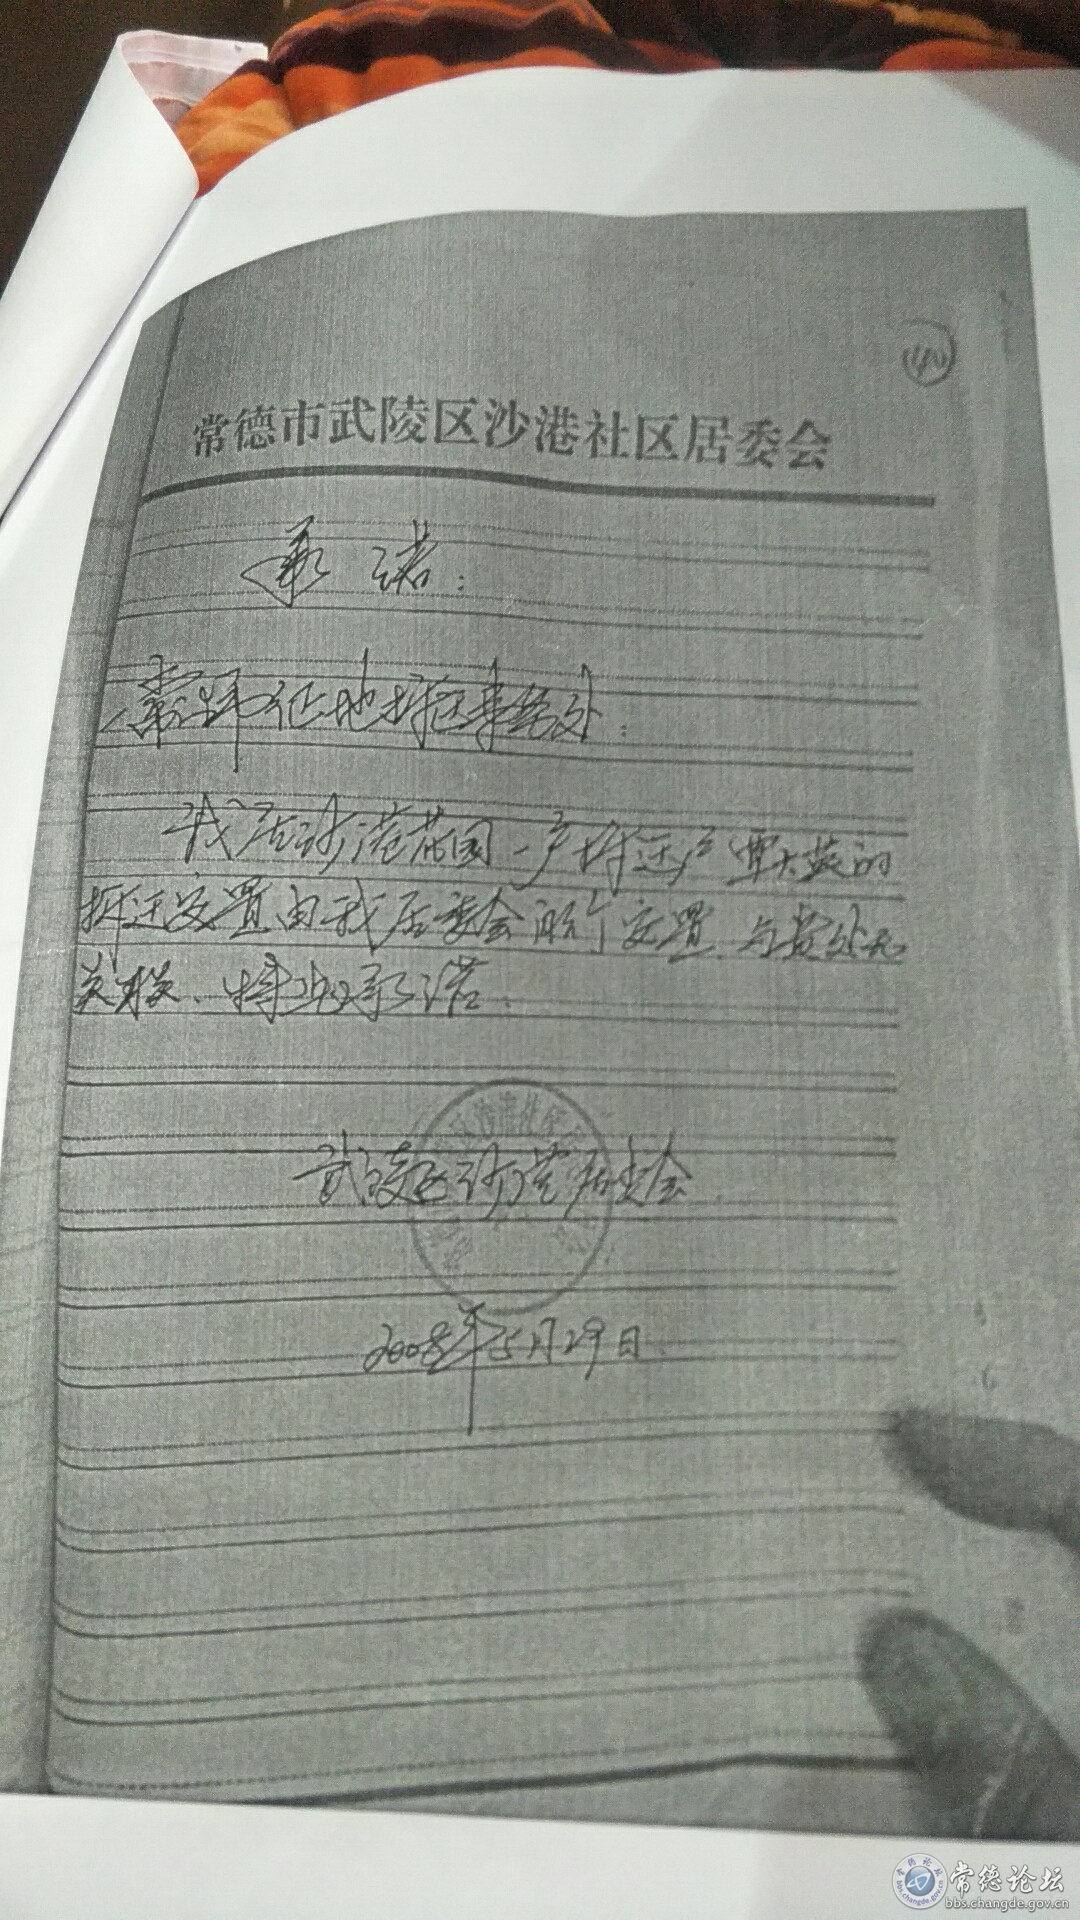 常德市武陵区沙港社区居委会
承诺：
征地拆迁事务处：
我居沙港花园一户拆迁户覃大英的
拆迁安置由我居委会进行安置、与贵处无
关联、特此承诺：
武陵区沙港居委会
2008年5月29日
常德论坛
bbs.changde.gov.cn